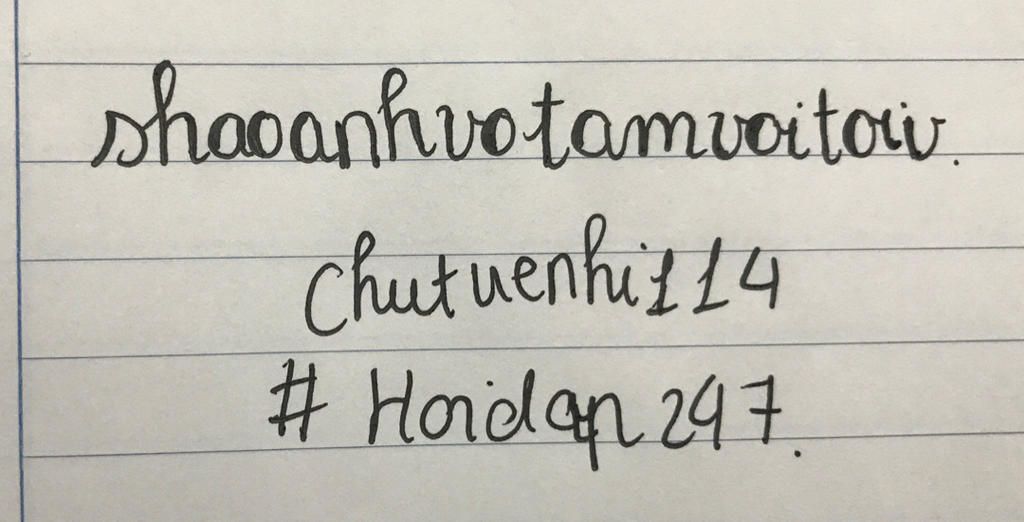 shaoanhvotamvoitoiv.
chutuenhi114
# Hoidap247.